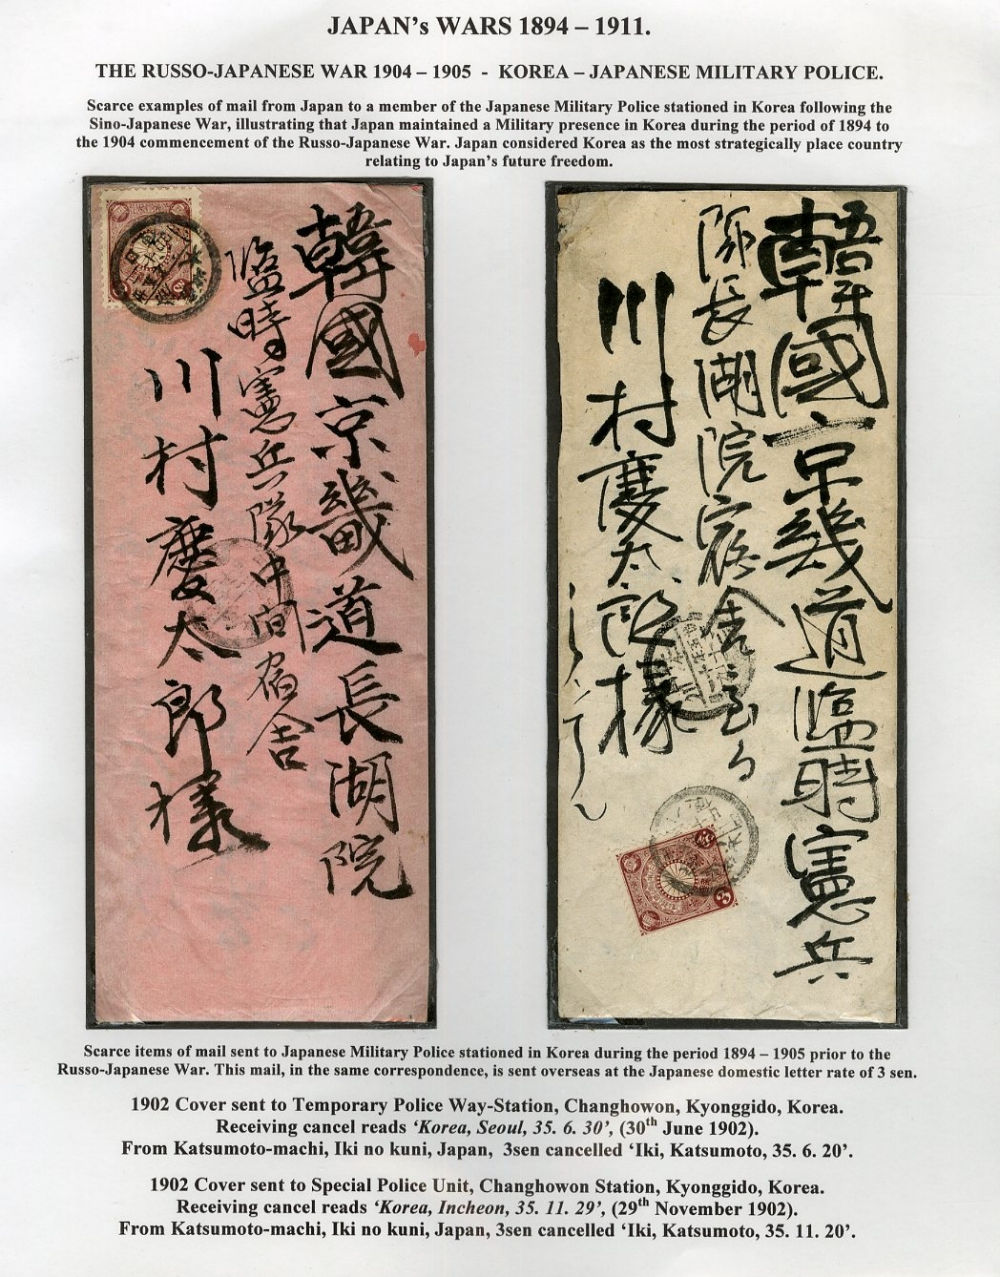 JAPAN's WARS 1894 – 1911.
THE RUSSO-JAPANESE WAR 1904 – 1905 - KOREA – JAPANESE MILITARY POLICE.
Scarce examples of mail from Japan to a member of the Japanese Military Police stationed in Korea following the
Sino-Japanese War, illustrating that Japan maintained a Military presence in Korea during the period of 1894 to
the 1904 commencement of the Russo-Japanese War. Japan considered Korea as the most strategically place country
relating to Japan's future freedom.
韓國京畿道長湖院
臨時憲兵隊中間宿舎
川村慶太郎様
韓國京畿道臨時憲兵
隊長湖院宿舎
川村慶太郎様
3
Scarce items of mail sent to Japanese Military Police stationed in Korea during the period 1894 – 1905 prior to the
Russo-Japanese War. This mail, in the same correspondence, is sent overseas at the Japanese domestic letter rate of 3 sen.
1902 Cover sent to Temporary Police Way-Station, Changhowon, Kyonggido, Korea.
Receiving cancel reads ‘Korea, Seoul, 35. 6. 30’, (30th June 1902).
From Katsumoto-machi, Iki no kuni, Japan, 3sen cancelled ‘Iki, Katsumoto, 35. 6. 20’.
1902 Cover sent to Special Police Unit, Changhowon Station, Kyonggido, Korea.
Receiving cancel reads ‘Korea, Incheon, 35. 11. 29’, (29th November 1902).
From Katsumoto-machi, Iki no kuni, Japan, 3sen cancelled ‘Iki, Katsumoto, 35. 11. 20’.